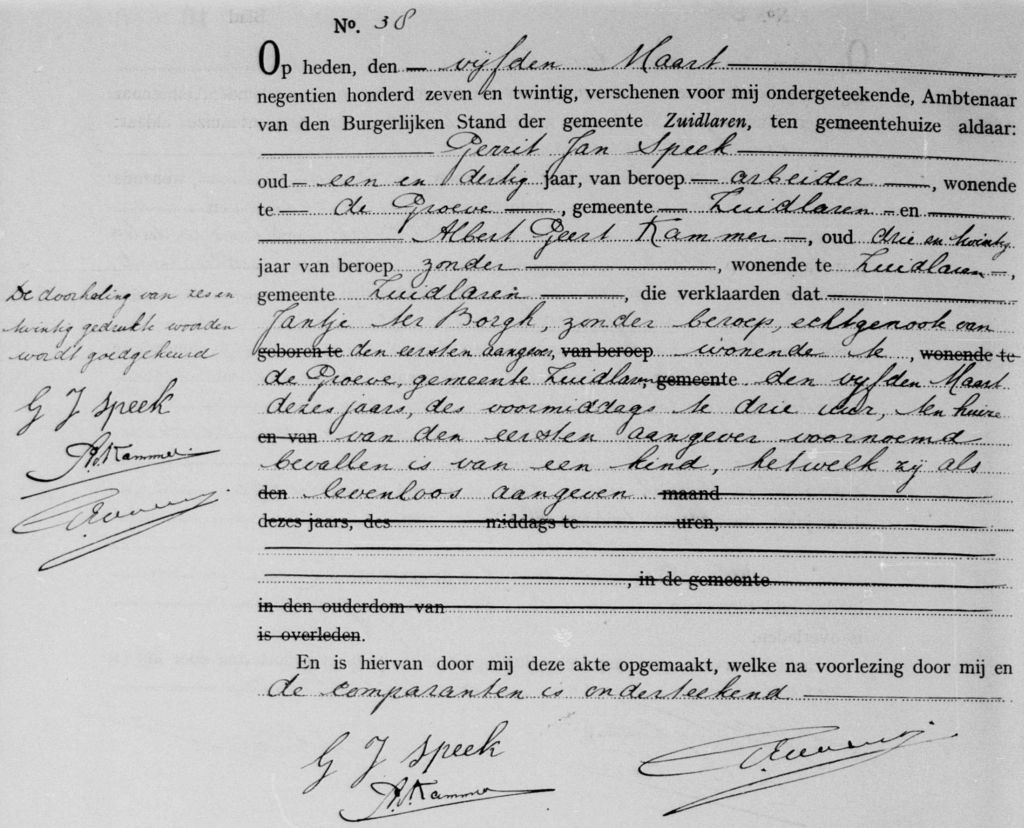 No. 38
Op heden, den vijfden Maart
negentien honderd zeven en twintig, verschenen voor mij ondergeteekende, Ambtenaar
van den Burgerlijken Stand der gemeente Zuidlaren, ten gemeentehuize aldaar:
Gerrit Jan Speek
oud een en dertig jaar, van beroep arbeider, wonende
te de Groeve, gemeente Zuidlaren en
Albert Geert Kammer, oud drie en twintig
jaar van beroep zonder, wonende te Zuidlaren,
gemeente Zuidlaren, die verklaarden dat
Jantje ter Borgh, zonder beroep, echtgenoote van
geboren te den eersten aangever, van beroep wonende te, wonende te
de Groeve, gemeente Zuidlaren gemeente den vijfden Maart
dezes jaars, des voormiddags te drie uur, ten huize
en van van den eersten aangever voornoemd
bevallen is van een kind, hetwelk zij als
den levenloos aangeven maand
dezes jaars, des middags te uren,
, in de gemeente
in den ouderdom van
is overleden.
En is hiervan door mij deze akte opgemaakt, welke na voorlezing door mij en
de comparanten is onderteekend
G J Speek
A.G. Kammer
De doorhaling van zes en
twintig gedrukte woorden
wordt goedgekeurd
G J Speek
A.G. Kammer